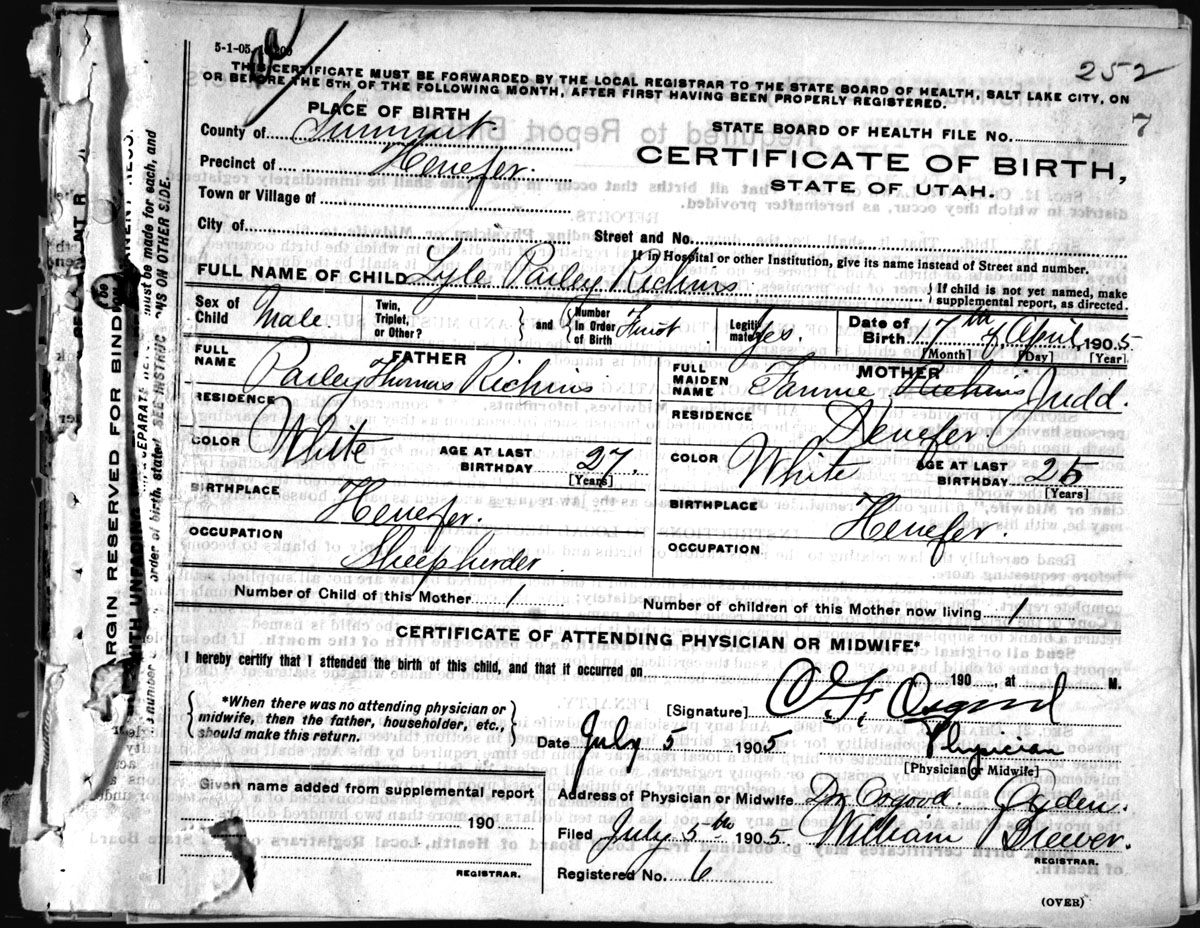 5-1-05
252
THIS CERTIFICATE MUST BE FORWARDED BY THE LOCAL REGISTRAR TO THE STATE BOARD OF HEALTH, SALT LAKE CITY, ON
OR BEFORE THE 5TH OF THE FOLLOWING MONTH, AFTER FIRST HAVING BEEN PROPERLY REGISTERED.
PLACE OF BIRTH
STATE BOARD OF HEALTH FILE NO. 7
County of Summit.
CERTIFICATE OF BIRTH,
Precinct of Henefer.
STATE OF UTAH.
Town or Village of
City of
Street and No.
If in Hospital or other Institution, give its name instead of Street and number.
FULL NAME OF CHILD Lyle Parley Richins
If child is not yet named, make
supplemental report, as directed.
Sex of Child Male.
Twin, Triplet, or Other?
and
Number in Order of Birth First
Legitimate? Yes.
Date of Birth 17th of April, 1905
[Month] [Day] [Year]
FATHER
FULL NAME Parley Thomas Richins
RESIDENCE
COLOR White
AGE AT LAST BIRTHDAY 27.
[Years]
BIRTHPLACE Henefer.
OCCUPATION Sheepherder
MOTHER
FULL MAIDEN NAME Fannie Richins Judd.
RESIDENCE Henefer.
COLOR White
AGE AT LAST BIRTHDAY 26
[Years]
BIRTHPLACE Henefer.
OCCUPATION
Number of Child of this Mother 1
Number of children of this Mother now living 1
CERTIFICATE OF ATTENDING PHYSICIAN OR MIDWIFE*
I hereby certify that I attended the birth of this child, and that it occurred on 190 , at M.
*When there was no attending physician or
midwife, then the father, householder, etc.,
should make this return.
[Signature] C. F. Osgood
Date July 5 1905. Physician
[Physician or Midwife]
Given name added from supplemental report
190
REGISTRAR.
Address of Physician or Midwife Dr Osgood. Ogden.
Filed July 5th 1905. William Brewer.
REGISTRAR.
Registered No. 6
(OVER)
ARGIN RESERVED FOR BINDIN
WITH UNFADING
must be made for each, and
order of birth stated. SEE INSTRUC
NS ON OTHER SIDE.